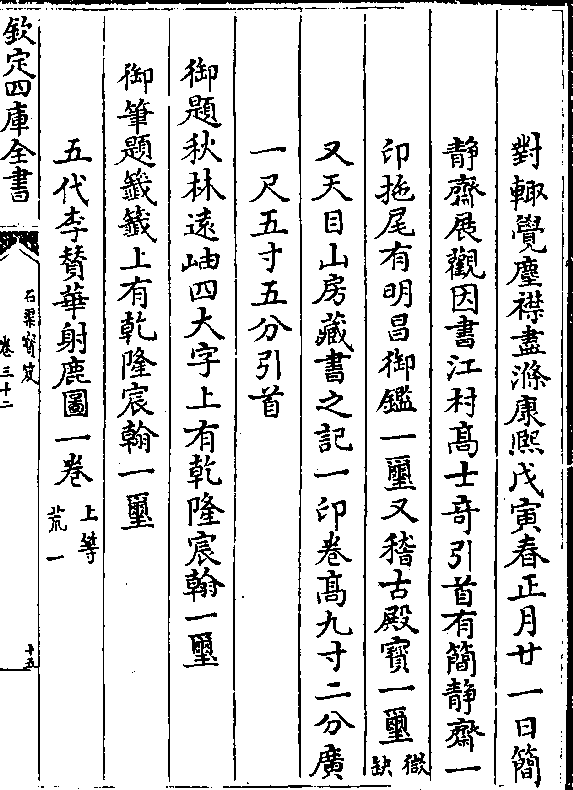 對輙覺塵襟盡滌康熙戊寅春正月廿一日簡
靜齋展觀因書江村高士竒引首有簡靜齋一
印拖尾有明昌御鑑一璽又稽古殿寶一璽微缺
又天目山房藏書之記一印卷高九寸二分廣
一尺五寸五分引首
御題秋林遠岫四大字上有乾隆宸翰一璽
御筆題籤籤上有乾隆宸翰一璽
五代李贊華射鹿圖一卷上等荒一
欽定四庫全書
石渠寳笈
卷三十二
十五